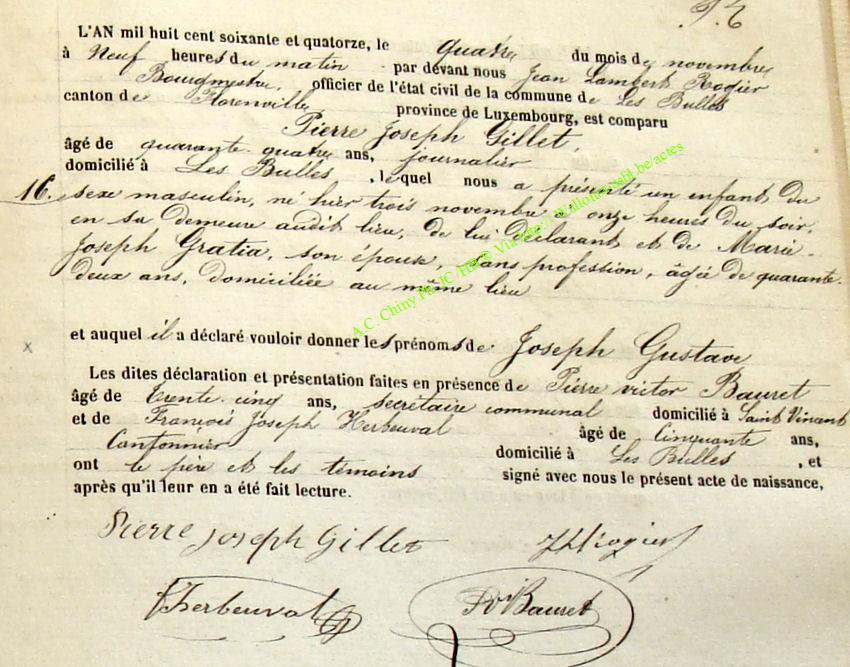 L'AN mil huit cent soixante et quatorze, le quatre du mois de novembre
à Neuf heures du matin par devant nous Jean Lambert Rogier
Bourgmestre, officier de l'état civil de la commune de Les Bulles
canton de Florenville province de Luxembourg, est comparu
Pierre Joseph Gillet,
âgé de quarante-quatre ans, journalier
domicilié à Les Bulles, lequel nous a présenté un enfant du
16. sexe masculin, né hier trois novembre à onze heures du soir,
en sa demeure audit lieu, de lui Déclarant et de Marie-
Joseph Gratia, son épouse, sans profession, âgée de quarante-
deux ans, domiciliée au même lieu
et auquel il a déclaré vouloir donner les prénoms de Joseph Gustave
Les dites déclaration et présentation faites en présence de Pierre victor Bauret
âgé de trente-cinq ans, secrétaire communal domicilié à Saint Vincent
et de François Joseph Herbeuval âgé de Cinquante ans,
Cantonnier domicilié à Les Bulles, et
ont le père et les témoins signé avec nous le présent acte de naissance,
après qu'il leur en a été fait lecture.
Pierre joseph Gillet JLRogier
Herbeuval PvBauret
A.C. Chiny